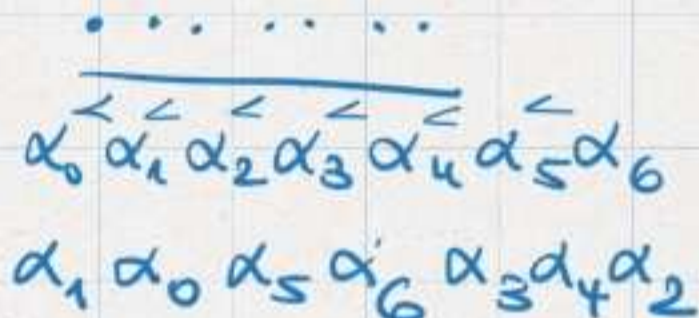 α₀ < α₁ < α₂ < α₃ < α₄ < α₅ < α₆
α₁ α₀ α₅ α₆ α₃ α₄ α₂